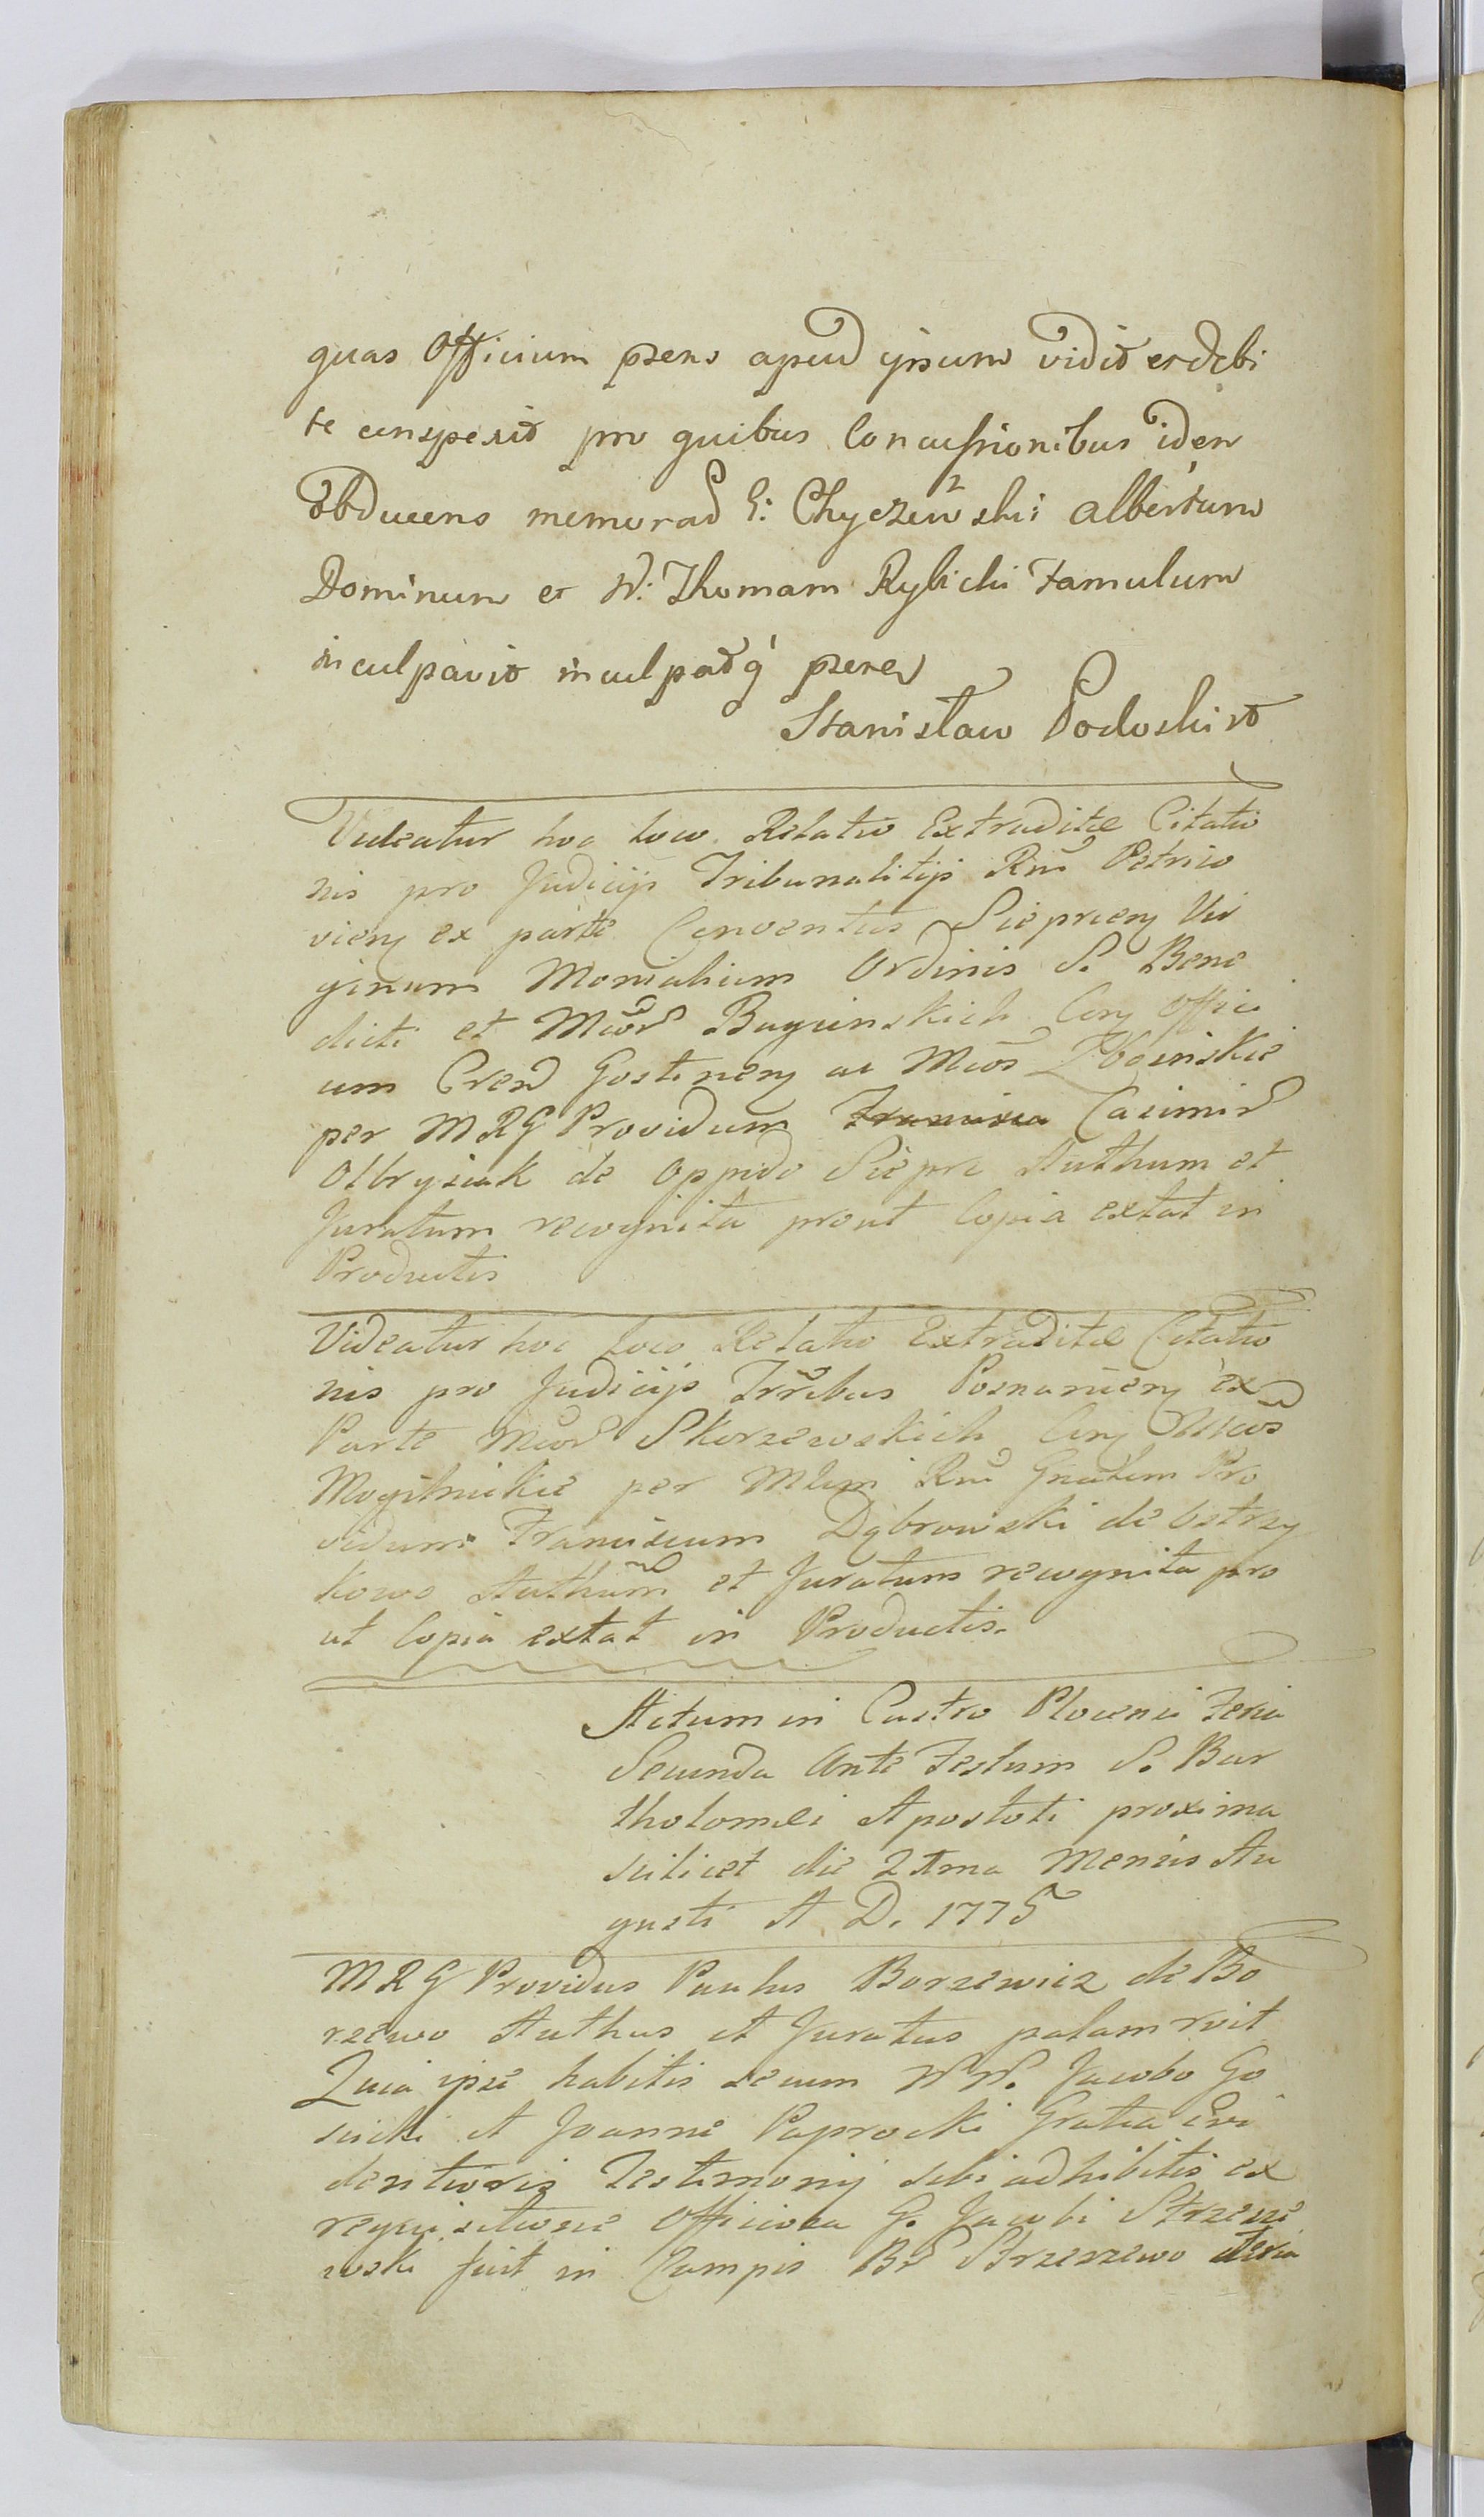 quas Officium pzens apud ipsum vidit et debi
te conspexit pro quibus Concussionibus idem
obducens memorad G: Chyczewski Albertum
Dominum et W: Thomam Rybicki Famulum
inculpavit inculpatq pzent
Stanisław Podoski
Videatur hoc loco Relatio Extraditæ Citatio
nis pro Judicijs Tribunalitijs Rni Petrico
vien ex parte Conventus Siepricen Vir
ginum Monialium Ordinis S. Bene
dicti et Mcor Buyinskich Con Offici
um Cren Gostinen ac Mcos Zboinskie
per MRG Providum Casimir
Olbrysiak de Oppido Siepre Authum et
Juratum recognita prout Copia extat in
Productis
Videatur hoc loco Relatio Extraditæ Citatio
nis pro Judicijs Trribus Posnanien ex
Parte Mcor Skorzewskich Con Mcos
Mogilnickie per Mlem Rni Gnalem Pro
vidum Franciscum Dąbrowski de Ostrzy
kowo Authum et Juratum recognita pro
ut Copia extat in Productis.
Actum in Castro Plocensi Feria
Secunda Ante Festum S. Bar
tholomæi Apostoli proxima
scilicet die 21ma Mensis Au
gusti A D. 1775
MRG Providus Paulus Borzewicz de Bo
rzewo Authus et Juratus palam rvit
Quia ipse habitis secum WW. Jacobo Go
sicki et Joanne Paprocki Gratia Evi
dentioris Testimonij sibi adhibitis ex
requisitione Officiosa G. Jacobi Strzesze
wski fuit in Campis Br Strzeszewo